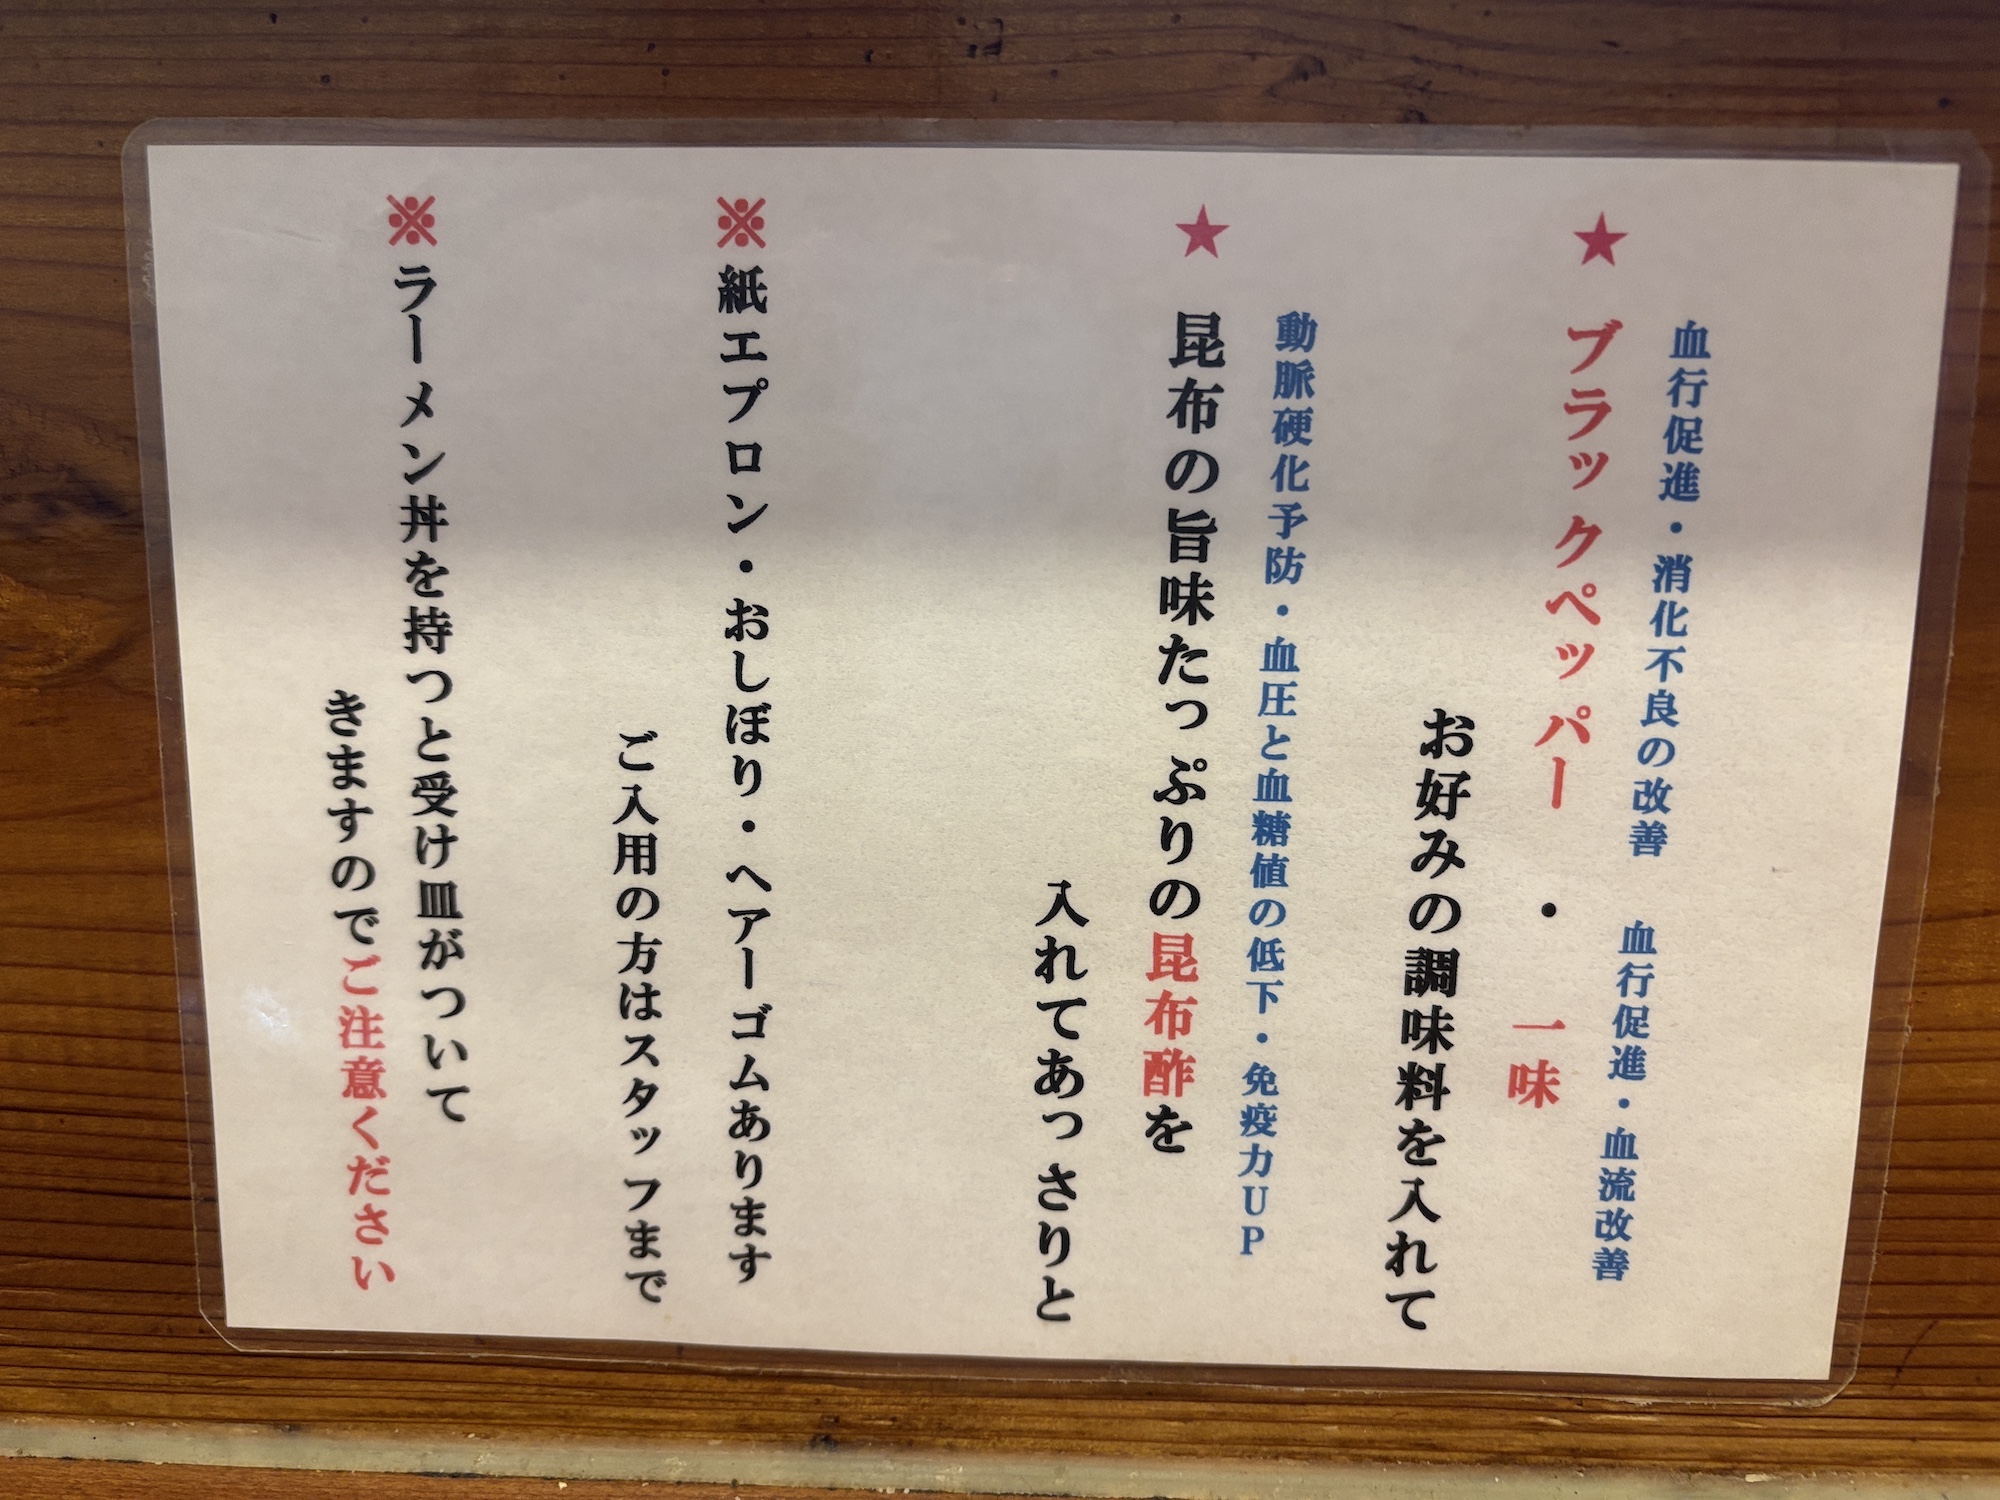 血行促進・消化不良の改善　血行促進・血流改善
★ ブラックペッパー ・ 一味
お好みの調味料を入れて
動脈硬化予防・血圧と血糖値の低下・免疫力UP
★ 昆布の旨味たっぷりの昆布酢を
入れてあっさりと
※紙エプロン・おしぼり・ヘアーゴムあります
ご入用の方はスタッフまで
※ラーメン丼を持つと受け皿がついて
きますのでご注意ください